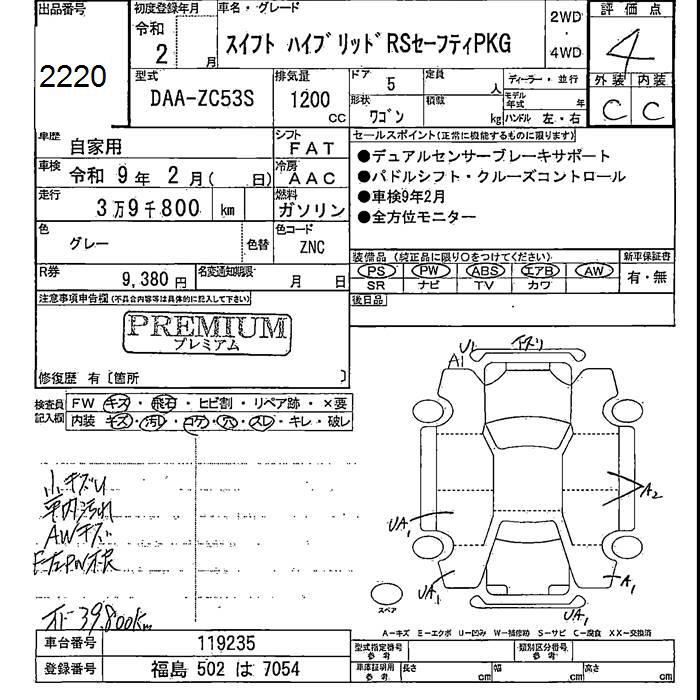 出品番号
2220
初度登録年月
令和
2 月
車名・グレード
スイフト ハイブリッドRSセーフティPKG
2WD
・
4WD
評価点
4
外装 内装
C C
型式
DAA-ZC53S
排気量
1200
CC
ドア 5
定員 人
ディーラー・並行
モデル年式 年
形状
ワゴン
積数 kg
ハンドル 左・右
車歴
自家用
シフト
FAT
車検
令和 9年 2月( 日)
冷房
AAC
走行
3万9千800 km
燃料
ガソリン
色
グレー
色替
色コード
ZNC
R券
9,380円
名変通知期限 月 日
セールスポイント(正常に機能するものに限ります)
●デュアルセンサーブレーキサポート
●パドルシフト・クルーズコントロール
●車検9年2月
●全方位モニター
装備品 (純正品に限り○をつけてください)
PS PW ABS エアB AW
SR ナビ TV カワ
新車保証書
有・無
後日品
注意事項申告欄(不具合内容等は具体的に記入して下さい)
PREMIUM
プレミアム
修復歴 有〔箇所 〕
検査員
記入欄
FW キズ・飛石・ヒビ割・リペア跡・×要
内装 キズ・汚レ・コゲ・穴・スレ・キレ・破レ
小キズU
車内汚れ
AWキズ
オドー39,800km
U1
A1
A2
UA1
UA1
A1
UA1
スペア
A-キズ E-エクボ U-凹み W-補修跡 S-サビ C-腐食 XX-交換済
車台番号 119235
登録番号 福島 502 は 7054
型式指定番号
参考
類別区分番号
参考
車庫証明用
参考
長さ cm 幅 cm 高さ cm